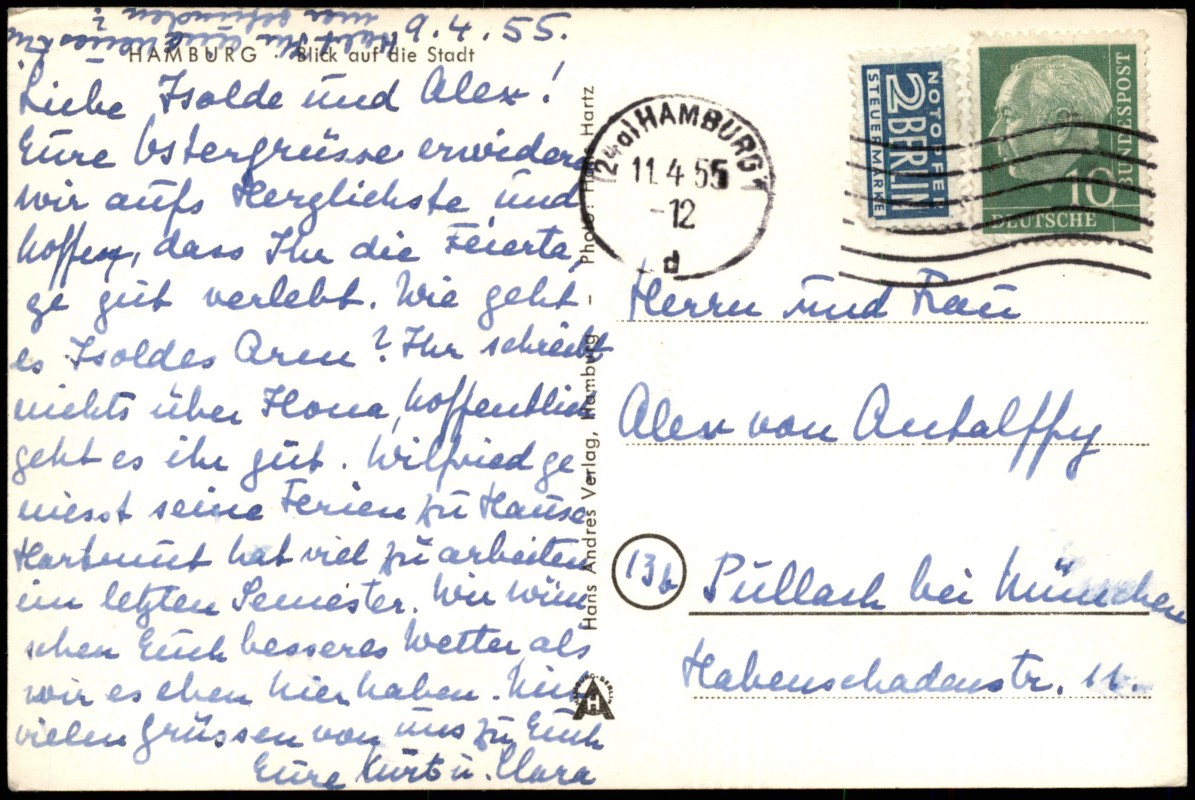 9.4.55.
HAMBURG · Blick auf die Stadt
Liebe Isolde und Alex!
Eure Ostergrüsse erwidern
wir aufs Herzlichste und
hoffen, dass Ihr die Feierta-
ge gut verlebt. Wie geht
es Isoldes Arm? Ihr schreibt
nichts über Ilona, hoffentlich
geht es ihr gut. Wilfried ge
niesst seine Ferien zu Hause
Hartmut hat viel zu arbeiten
im letzten Semester. Wir wün
schen Euch besseres Wetter als
wir es eben hier haben.
vielen Grüssen von uns zu Euch
Eure Kurt u. Clara
Hans Andres Verlag, Hamburg – Photo: Hartz
(24a) HAMBURG 1
11.4.55
-12
d
NOTOPFER
2 BERLIN
STEUERMARKE
10
DEUTSCHE
BUNDESPOST
Herrn und Frau
Alex von Antalffy
13b
Pullach bei München
Habenschadenstr. 11.